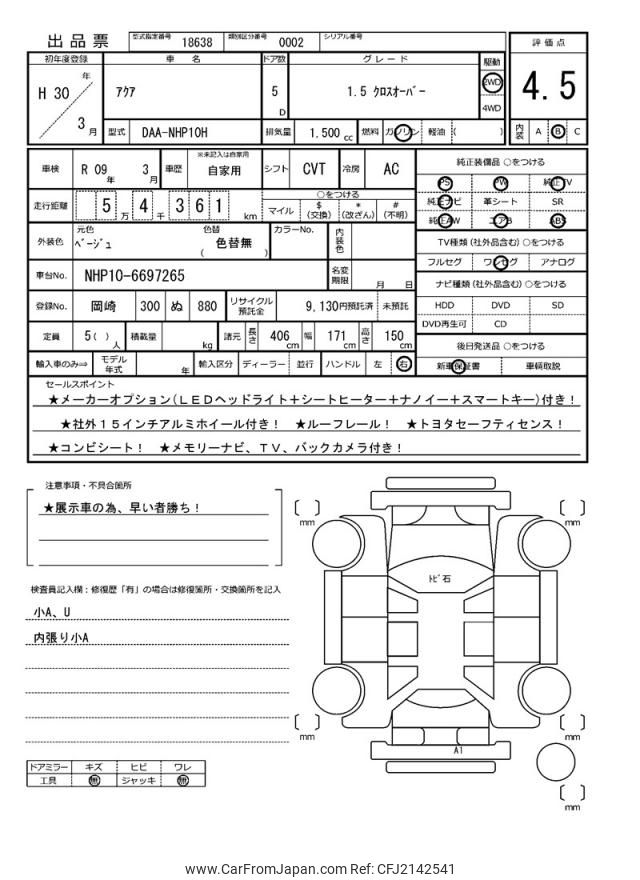 出品票 型式指定番号 18638 類別区分番号 0002 シリアル番号
評価点
4.5
内装 A B C
初年度登録 車名 ドア数 グレード 駆動
H 30 年 3 月 アクア 5 D 1.5 クロスオーバー 2WD 4WD
型式 DAA-NHP10H 排気量 1.500 cc 燃料 ガソリン 軽油 ( )
車検 R 09 年 3 月 車歴 ※未記入は自家用 自家用 シフト CVT 冷房 AC
走行距離 5 万 4 千 3 6 1 km
○をつける
マイル $ (交換) * (改ざん) # (不明)
外装色 元色 ベージュ 色替 色替無 ( ) カラーNo. 内装色
車台No. NHP10-6697265 名変期限 月 日
登録No. 岡崎 300 ぬ 880 リサイクル預託金 9,130円預託済 未預託
定員 5( ) 人 積載量 kg 諸元 長さ 406 cm 幅 171 cm 高さ 150 cm
輸入車のみ⇒ モデル年式 年 輸入区分 ディーラー 並行 ハンドル 左 右
純正装備品 ○をつける
PS PW 純正TV
純正ナビ 革シート SR
純正AW エアB ABS
TV種類(社外品含む) ○をつける
フルセグ ワンセグ アナログ
ナビ種類(社外品含む) ○をつける
HDD DVD SD
DVD再生可 CD
後日発送品 ○をつける
新車保証書 車輌取説
セールスポイント
★メーカーオプション(LEDヘッドライト+シートヒーター+ナノイー+スマートキー)付き!
★社外15インチアルミホイール付き! ★ルーフレール! ★トヨタセーフティセンス!
★コンビシート! ★メモリーナビ、TV、バックカメラ付き!
注意事項・不具合箇所
★展示車の為、早い者勝ち!
検査員記入欄:修復歴「有」の場合は修復箇所・交換箇所を記入
小A、U
内張り小A
ドアミラー キズ ヒビ ワレ
工具 無 ジャッキ 無
mm mm
トビ石
mm mm
A1
mm
www.CarFromJapan.com Ref: CFJ2142541